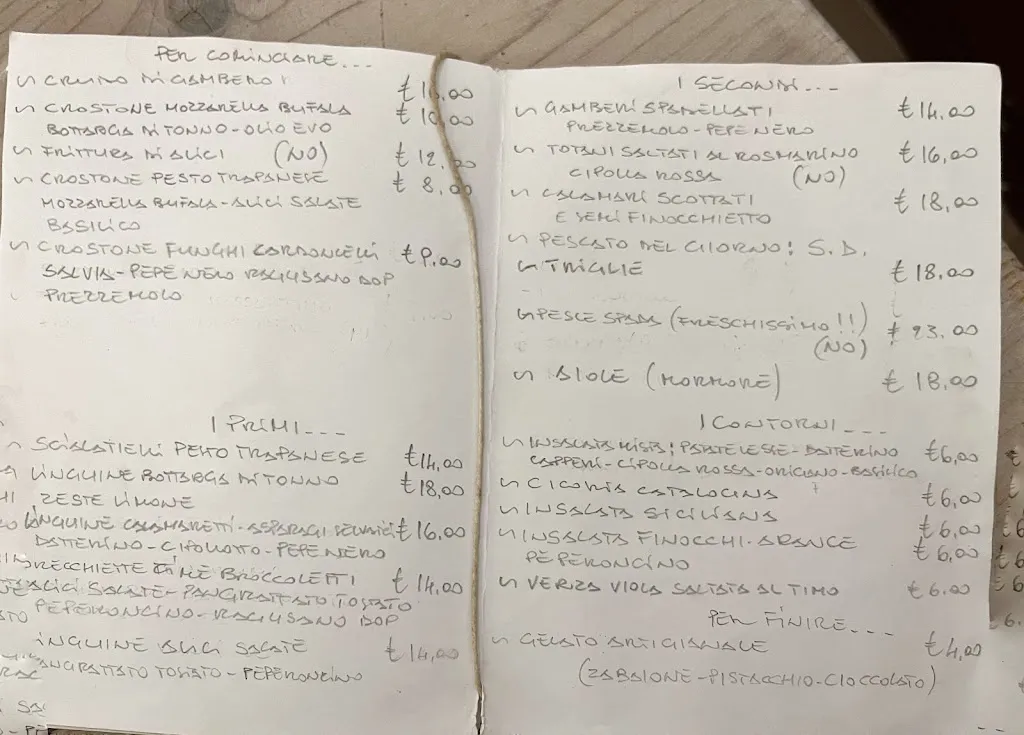 PER COMINCIARE...
~ CRUDO DI GAMBERO
~ CROSTONE MOZZARELLA BUFALA €10,00
BOTTARGA DI TONNO-OLIO EVO
~ FRITTURA DI ALICI (NO) €12,00
~ CROSTONE PESTO TRAPANESE €8,00
MOZZARELLA BUFALA-ALICI SALATE
BASILICO
~ CROSTONE FUNGHI CARDONCELLI €9,00
SALVIA-PEPE NERO RAGUSANO DOP
PREZZEMOLO
I PRIMI...
SCIALATIELLI PESTO TRAPANESE €14,00
LINGUINE BOTTARGA DI TONNO €18,00
ZESTE LIMONE
LINGUINE CALAMARETTI-ASPARAGI €16,00
DATTERINO-CIPOLLOTTO-PEPE NERO
ORECCHIETTE CIME BROCCOLETTI €14,00
ALICI SALATE-PANGRATTATO TOSTATO
PEPERONCINO-RAGUSANO DOP
LINGUINE ALICI SALATE €14,00
PANGRATTATO TOSTATO-PEPERONCINO
I SECONDI...
~ GAMBERI SPADELLATI €14,00
PREZZEMOLO-PEPE NERO
~ TOTANI SALTATI AL ROSMARINO €16,00
CIPOLLA ROSSA (NO)
~ CALAMARI SCOTTATI €18,00
E SEMI FINOCCHIETTO
~ PESCATO DEL GIORNO: S.D.
~ TRIGLIE €18,00
~ PESCE SPADA (FRESCHISSIMO!!) €23,00
(NO)
~ AIOLE (MORMORE) €18,00
I CONTORNI...
~ INSALATA MISTA: PANTELESE-DATTERINO €6,00
CAPPERI-CIPOLLA ROSSA-ORIGANO-BASILICO
~ CICORIA CATALOGNA €6,00
~ INSALATA SICILIANA €6,00
~ INSALATA FINOCCHI-ARANCE €6,00
PEPERONCINO
~ VERZA VIOLA SALTATA AL TIMO €6.00
PER FINIRE...
~ GELATO ARTIGIANALE €4,00
(ZABAIONE-PISTACCHIO-CIOCCOLATO)